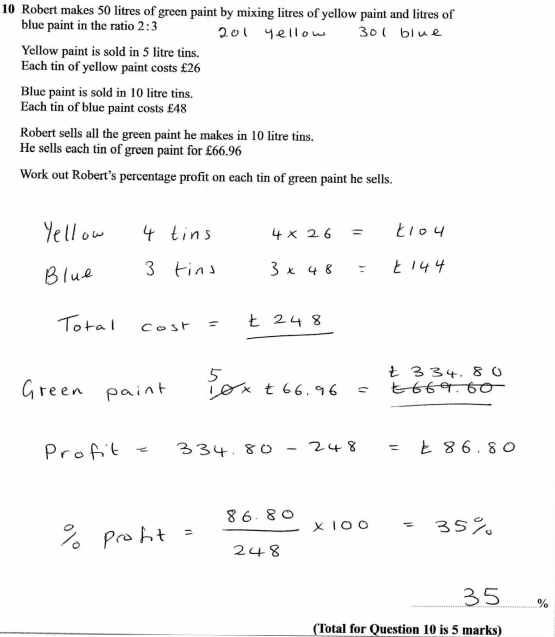 10 Robert makes 50 litres of green paint by mixing litres of yellow paint and litres of
blue paint in the ratio 2:3
20l yellow 30l blue
Yellow paint is sold in 5 litre tins.
Each tin of yellow paint costs £26
Blue paint is sold in 10 litre tins.
Each tin of blue paint costs £48
Robert sells all the green paint he makes in 10 litre tins.
He sells each tin of green paint for £66.96
Work out Robert's percentage profit on each tin of green paint he sells.
Yellow 4 tins 4 x 26 = £104
Blue 3 tins 3 x 48 = £144
Total cost = £248
5 £334.80
Green paint 10 x £66.96 = £669.60
Profit = 334.80 - 248 = £86.80
86.80
% profit = x 100 = 35%
248
35 %
(Total for Question 10 is 5 marks)